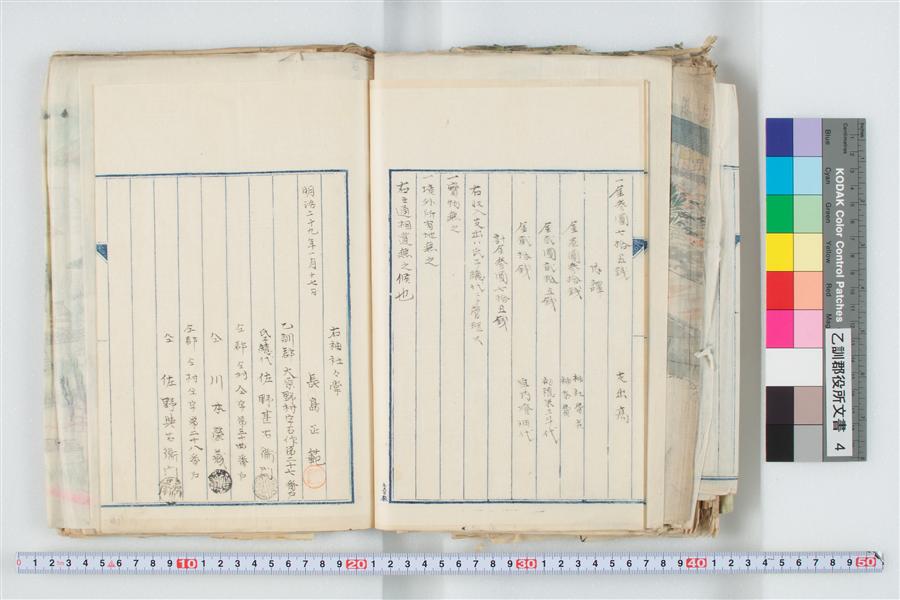 一金参圓七拾五銭 支出高
内譯
金壱圓参拾銭
金貮圓貮拾五銭
金貮拾銭
計金参圓七拾五銭
右収入支出ハ氏子総代ニテ管理ス
一寳物無之
一境外所有地無之
右之通相違無之候也
明治二十九年一月十七日
右神社々掌
長島正範
乙訓郡大原野村字石作第二十七番戸
氏子総代 佐野甚右衛門
仝郡仝村仝字第三十四番戸
仝 川本
仝郡仝村仝字第二十八番戸
仝 佐野與右衛門
乙訓郡役所文書 4
KODAK Color Control Patches
Blue Cyan Green Yellow Red
Inches
Centimetres
1 2 3 4 5 6 7 8 9 10 1 2 3 4 5 6 7 8 9 20 1 2 3 4 5 6 7 8 9 30 1 2 3 4 5 6 7 8 9 40 1 2 3 4 5 6 7 8 9 50